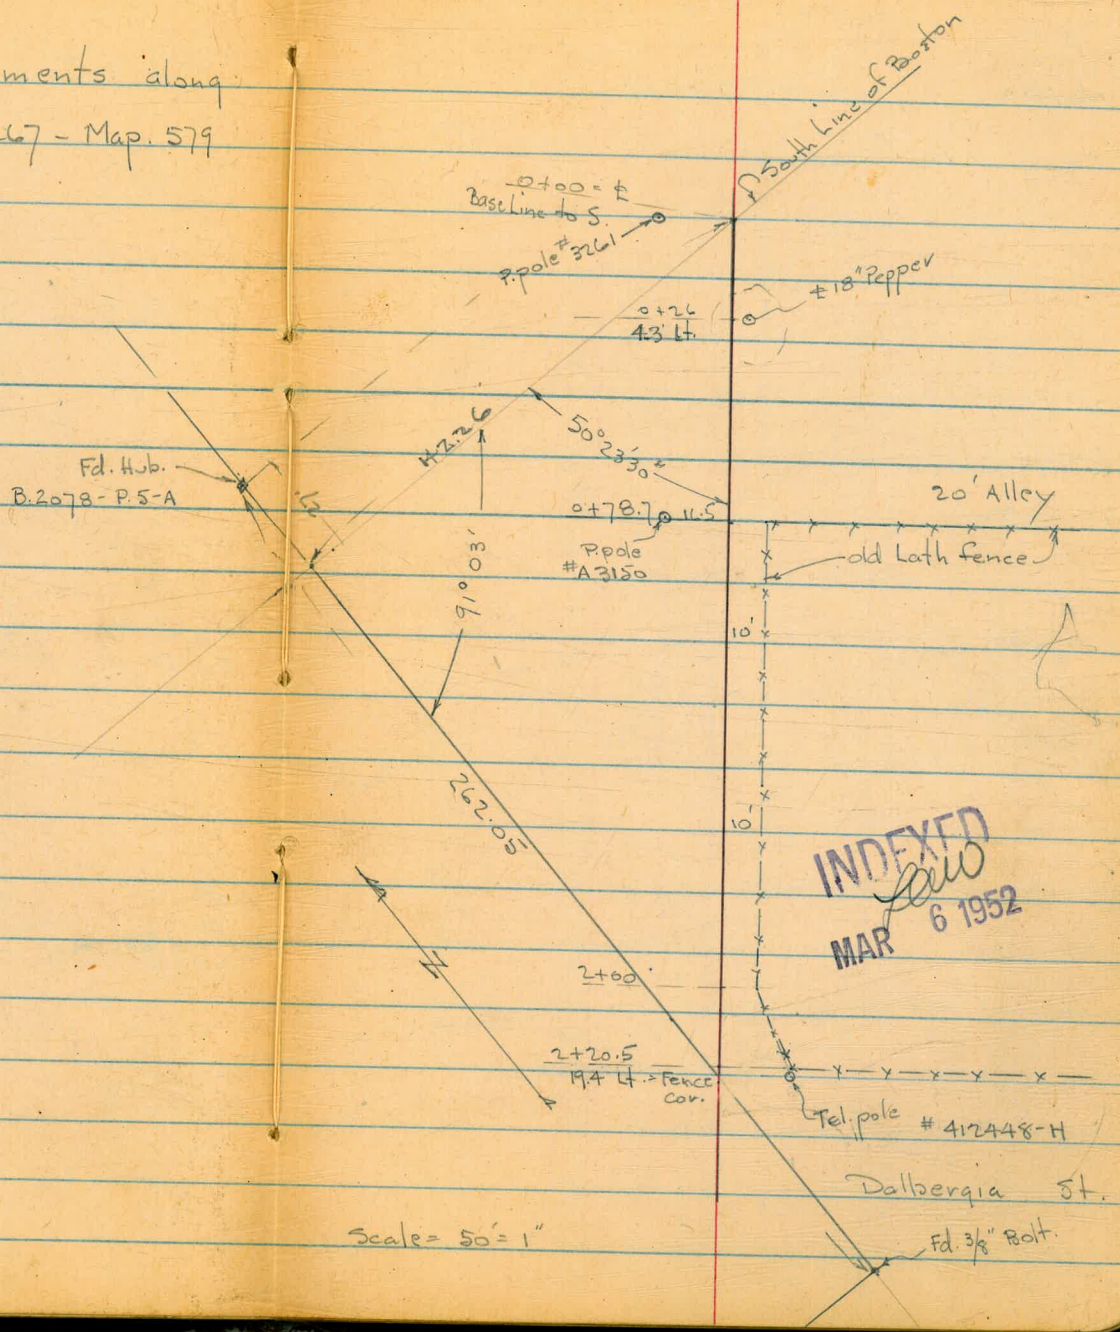 ments along
67 - Map. 579
South Line of Boston
0+00 = ℄
Base Line to S.
P.pole #3261
18" Pepper
0+26
4.3' Lt.
50° 23' 30"
Fd. Hub.
B.2078 - P.5-A
20' Alley
0+78.7 11.5
P.pole
#A3150
old Lath fence
91° 03'
10'
262.05
10'
INDEXED
MAR 6 1952
N
2+00
2+20.5
19.4 Lt. = Fence
cor.
Tel. pole # 412448-H
Dalbergia St.
Scale = 50' = 1"
Fd. 3/8" Bolt.